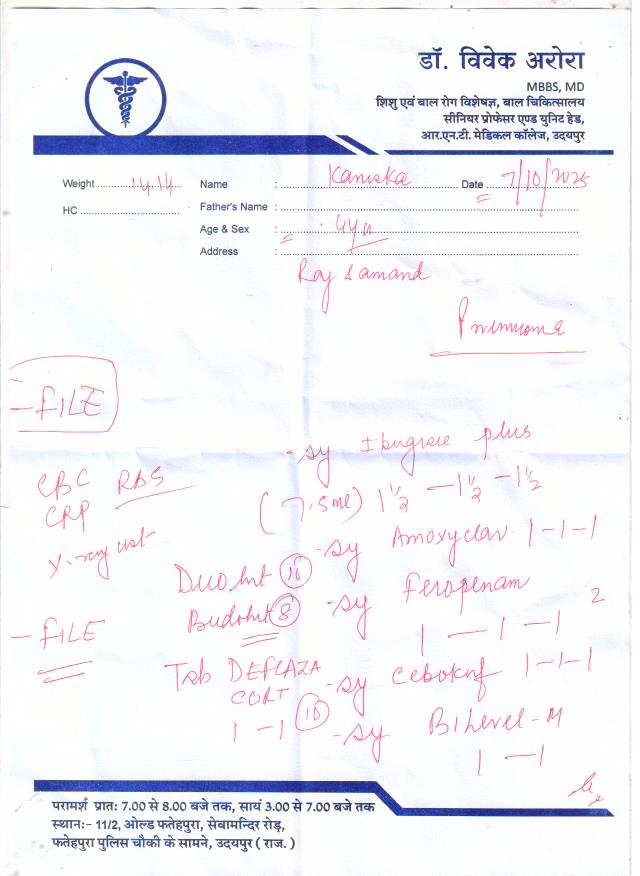 डॉ. विवेक अरोरा
MBBS, MD
शिशु एवं बाल रोग विशेषज्ञ, बाल चिकित्सालय
सीनियर प्रोफेसर एण्ड युनिट हेड,
आर.एन.टी. मेडिकल कॉलेज, उदयपुर
Weight 14.14 Name : Kaniska Date 7/10/2025
HC Father's Name :
Age & Sex : 4yr
Address :
Raj samand
- FILE
CBC RBS
CRP
X-ray
- sy plus
(7.5ml) 1½ - 1½ - 1½
- sy Amoxyclav 1-1-1
- sy Feropenam
1 - 1 - 1
Tab DEFLAZA
CORT
1 - 1
- FILE
- sy 1-1-1
- sy -M
1 - 1
परामर्श प्रातः 7.00 से 8.00 बजे तक, सायं 3.00 से 7.00 बजे तक
स्थान:- 11/2, ओल्ड फतेहपुरा, सेवामन्दिर रोड़,
फतेहपुरा पुलिस चौकी के सामने, उदयपुर ( राज. )